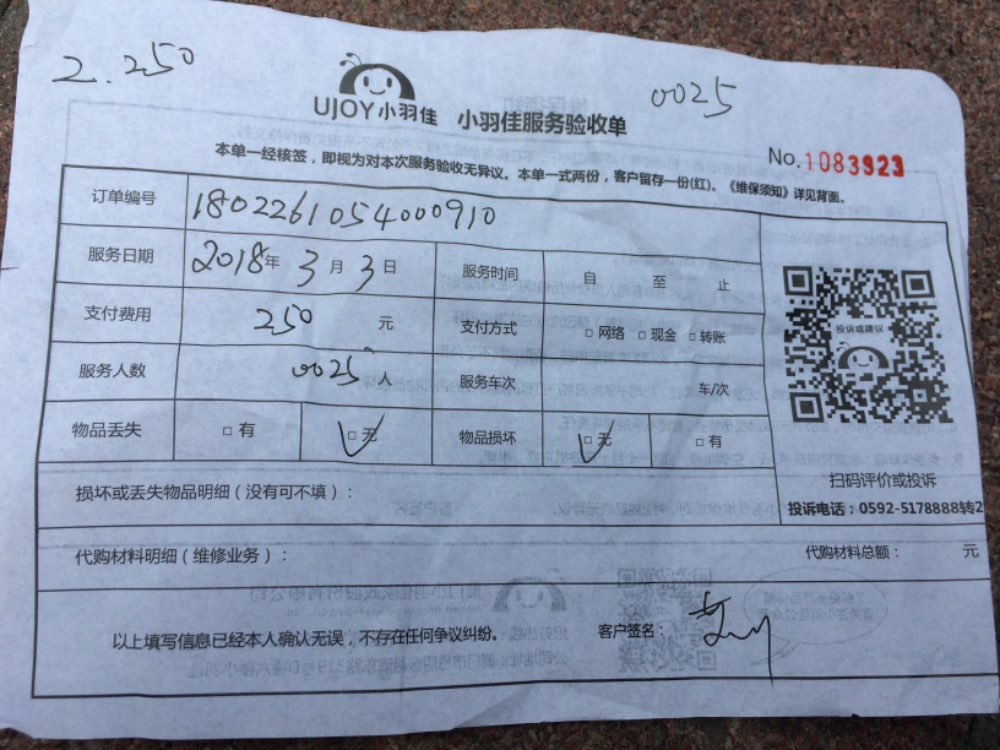 2.250
0025
UJOY小羽佳 小羽佳服务验收单
No.1083923
本单一经核签，即视为对本次服务验收无异议。本单一式两份，客户留存一份(红)。《维保须知》详见背面。
订单编号 1802261054000910
服务日期 2018年 3月 3日 服务时间 自 至 止
支付费用 250 元 支付方式 □ 网络 □ 现金 □ 转账
服务人数 0025 人 服务车次 车/次
物品丢失 □ 有 □ 无 物品损坏 □ 无 □ 有
投诉或建议
扫码评价或投诉
投诉电话：0592-5178888转2
损坏或丢失物品明细（没有可不填）：
代购材料明细（维修业务）： 代购材料总额： 元
以上填写信息已经本人确认无误，不存在任何争议纠纷。 客户签名：